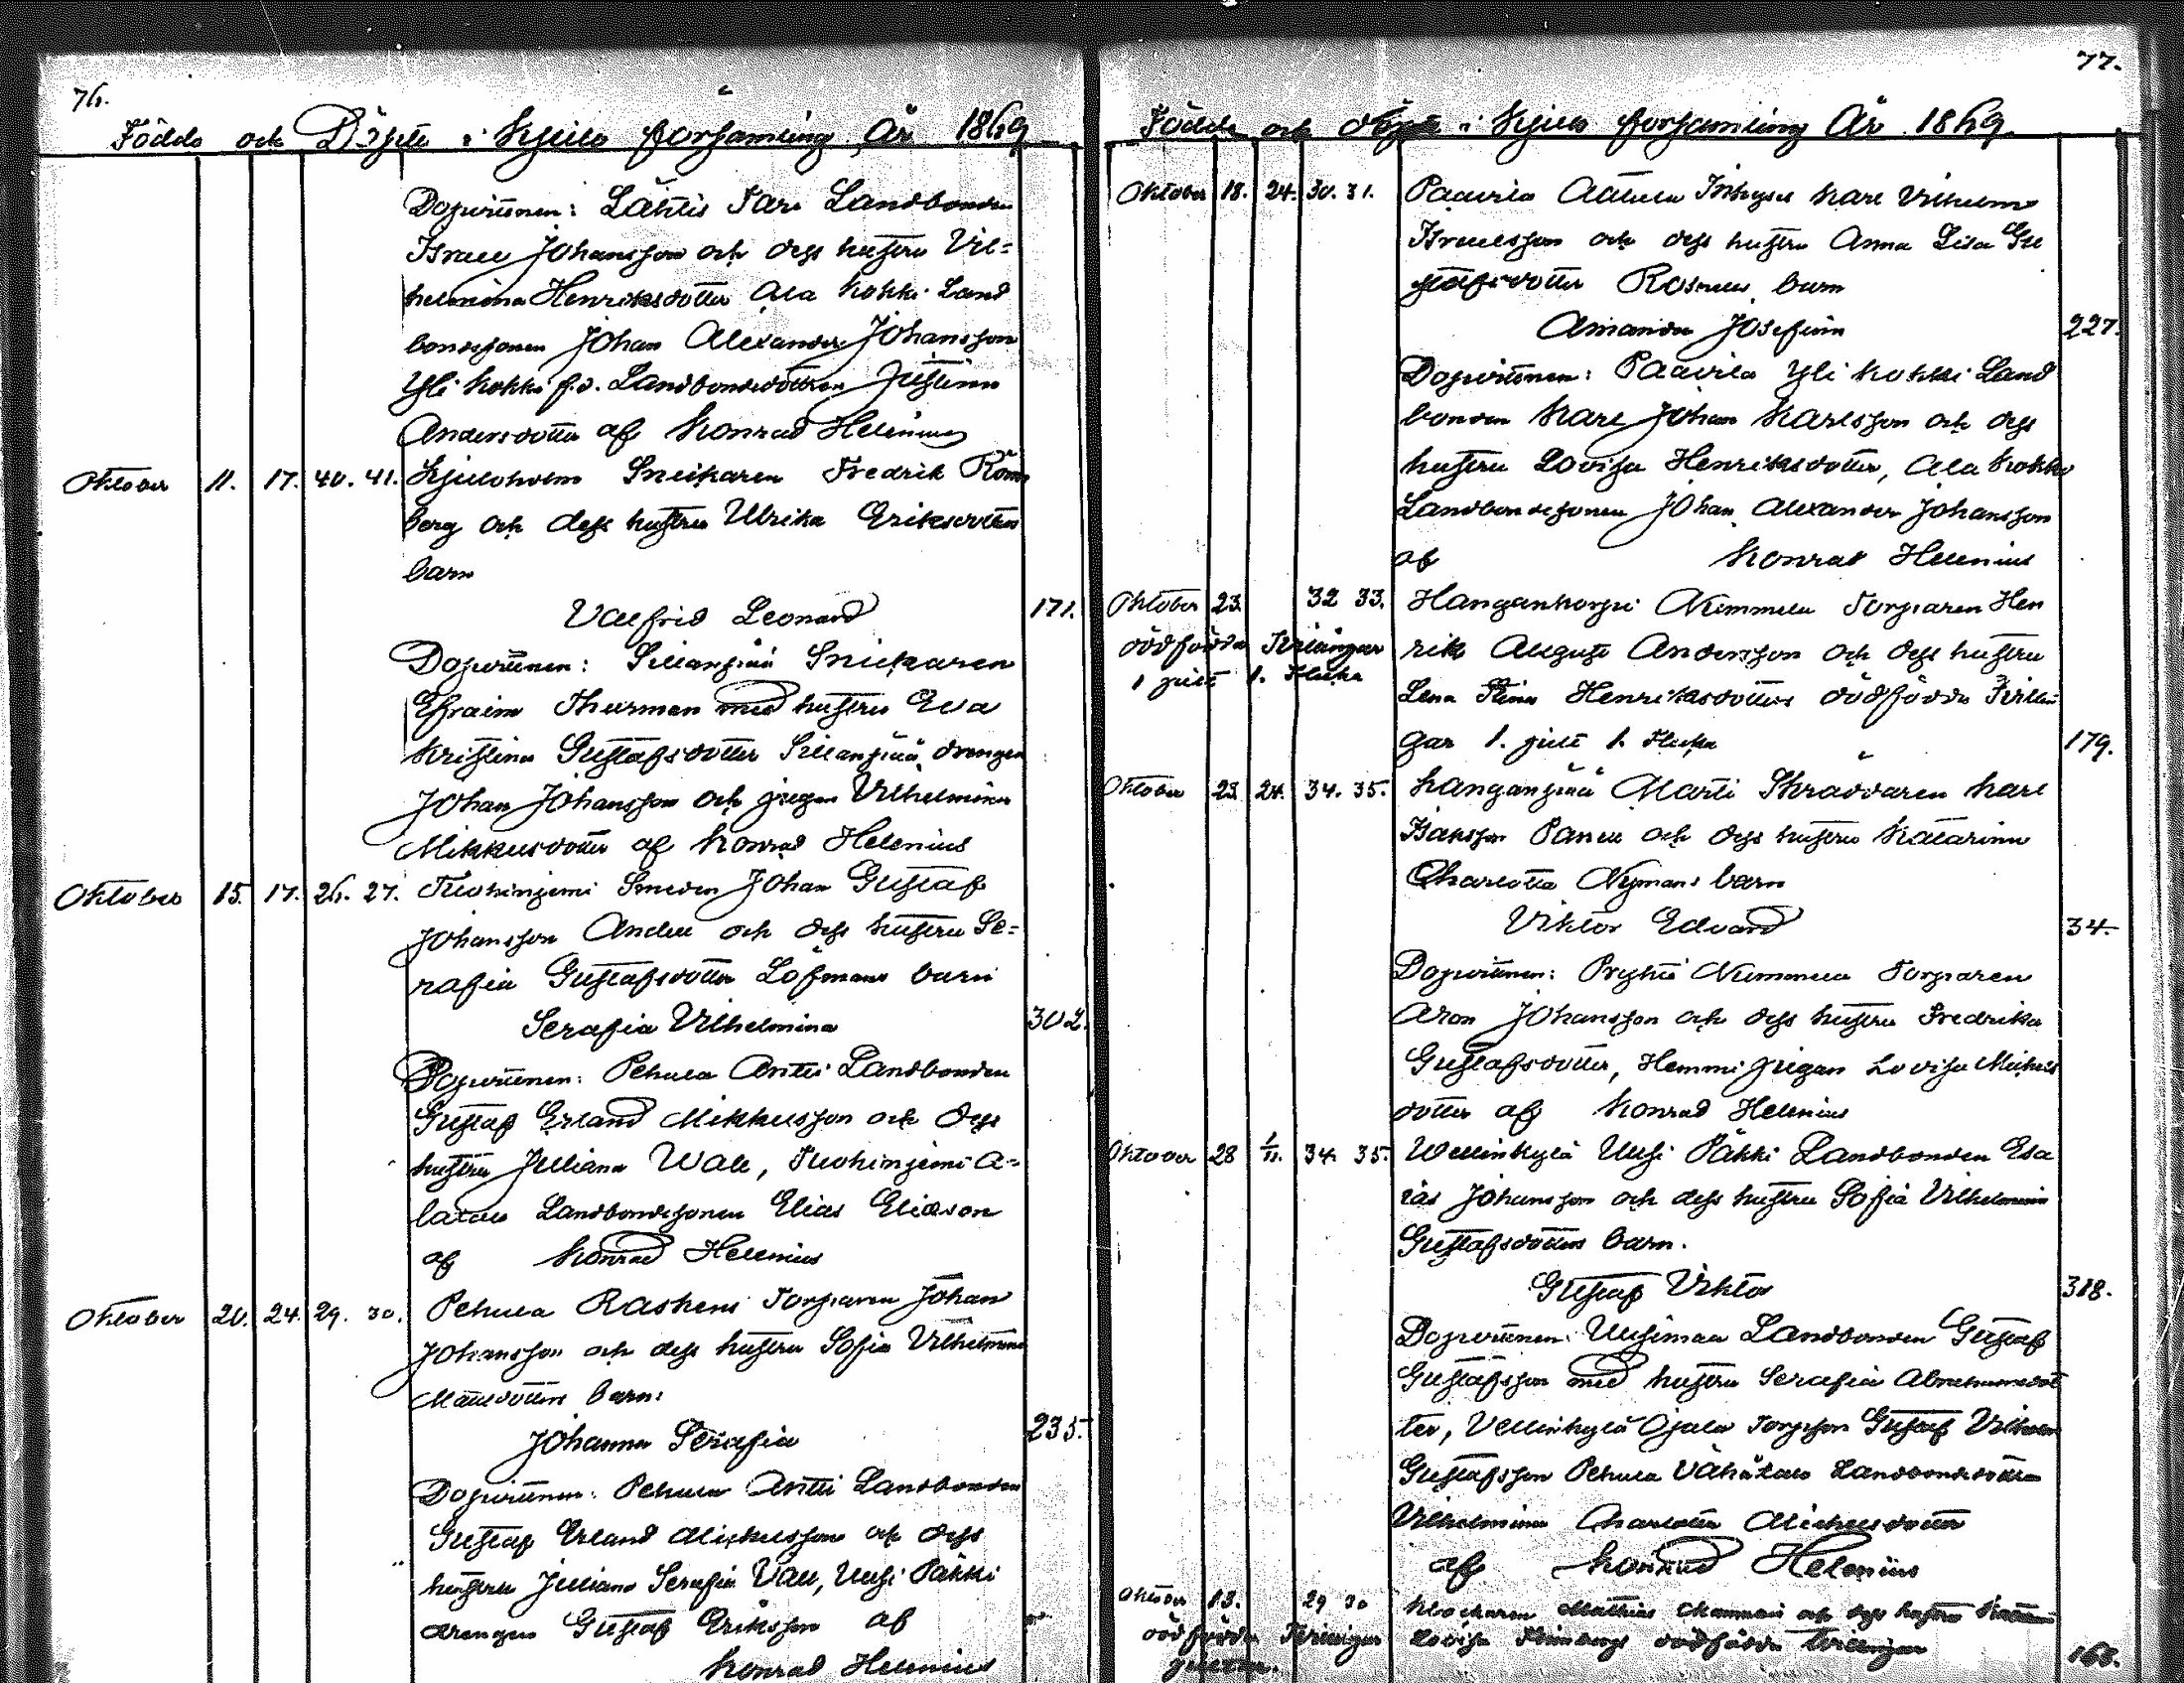 76.
Födde och Döpte i Kjulo församling År 1869
Dopvittnen: Lähtis Landbonden
Israel Johansson och dess hustru Vil=
helmina Henriksdotter Ala Kokki Land
bondesonen Johan Alexander Johansson
Yli Kokki f.d. Landbondedottren Justina
Andersdotter af Konrad Helenius
Oktober 11. 17. 40. 41. Kjuloholm Snickaren Fredrik Röm
berg och dess hustru Ulrika Eriksdotters
barn
Valfrid Leonard 171.
Dopvittnen: Snickaren
Efraim Thurman med hustru Eva
Kristina Gustafsdotter drengen
Johan Johansson och pigan Vilhelmina
Mikkelsdotter af Konrad Helenius
Oktober 15. 17. 26. 27. Tuohiniemi Smeden Johan Gustaf
Johansson och dess hustru Se=
rafia Gustafsdotter Löfmans barn
Serafia Vilhelmina 302.
Dopvittnen: Pehula Antti Landbonden
Gustaf Erland Mikkelsson och dess
hustru Juliana Wall, Tuohiniemi A=
latalo Landbondesonen Elias Eliasson
af Konrad Helenius
Oktober 20. 24. 29. 30. Pehula Torparen Johan
Johansson och dess hustru Sofia Vilhelmina
Mattsdotters barn:
Johanna Serafia 235.
Dopvittnen: Pehula Antti Landbonden
Gustaf Erland Mickelsson och dess
hustru Juliana Serafia Vall, Uusi Päkki
drengen Gustaf Eriksson af
Konrad Helenius
77.
Födde och döpte i Kjulo församling År 1869.
Oktober 18. 24. 30. 31. Paavila Karl Vilhelm
Israelsson och dess hustru Anna Lisa Gu
stafsdotter barn
Amanda Josefina 227.
Dopvittnen: Paavila Yli Kokki Land
bonden Karl Johan Karlsson och dess
hustru Lovisa Henriksdotter, Ala Kokki
Landbondesonen Johan Alexander Johansson
af Konrad Helenius
Oktober 23. 32 33. Nummela Torparen Hen
dödfödda Tvillingar rik August Andersson och dess hustru
1 gosse 1. Flicka Lena Stina Henriksdotters dödfödda Tvillin
gar 1. 1. Flicka 179.
Oktober 23. 24. 34. 35. Kanganpää Martti Skräddaren Karl
Isaksson och dess hustru Katarina
Charlotta Nymans barn
Viktor Edvard 34.
Dopvittnen: Nummela Torparen
Aron Johansson och dess hustru Fredrika
Gustafsdotter, Hemmi pigan Lovisa Michels
dotter af Konrad Helenius
Oktober 28 1/11. 34. 35. Wellinkylä Uusi Päkki Landbonden Esa
ias Johansson och dess hustru Sofia Vilhelmina
Gustafsdotters barn.
Gustaf Viktor 318.
Dopvittnen: Uusimaa Landbonden Gustaf
Gustafsson med hustru Serafia Abrahamsdot
ter, Vellinkylä Ojala Torpson Gustaf Vilhelm
Gustafsson Pehula Vähätalo Landbondedottren
Vilhelmina Charlotta Michelsdotter
af Konrad Helenius
Oktober 13. 29 30 Klockaren Mathias och dess hustru
dödfödda Tvillingar Lovisa dödfödda Tvillingar
168.